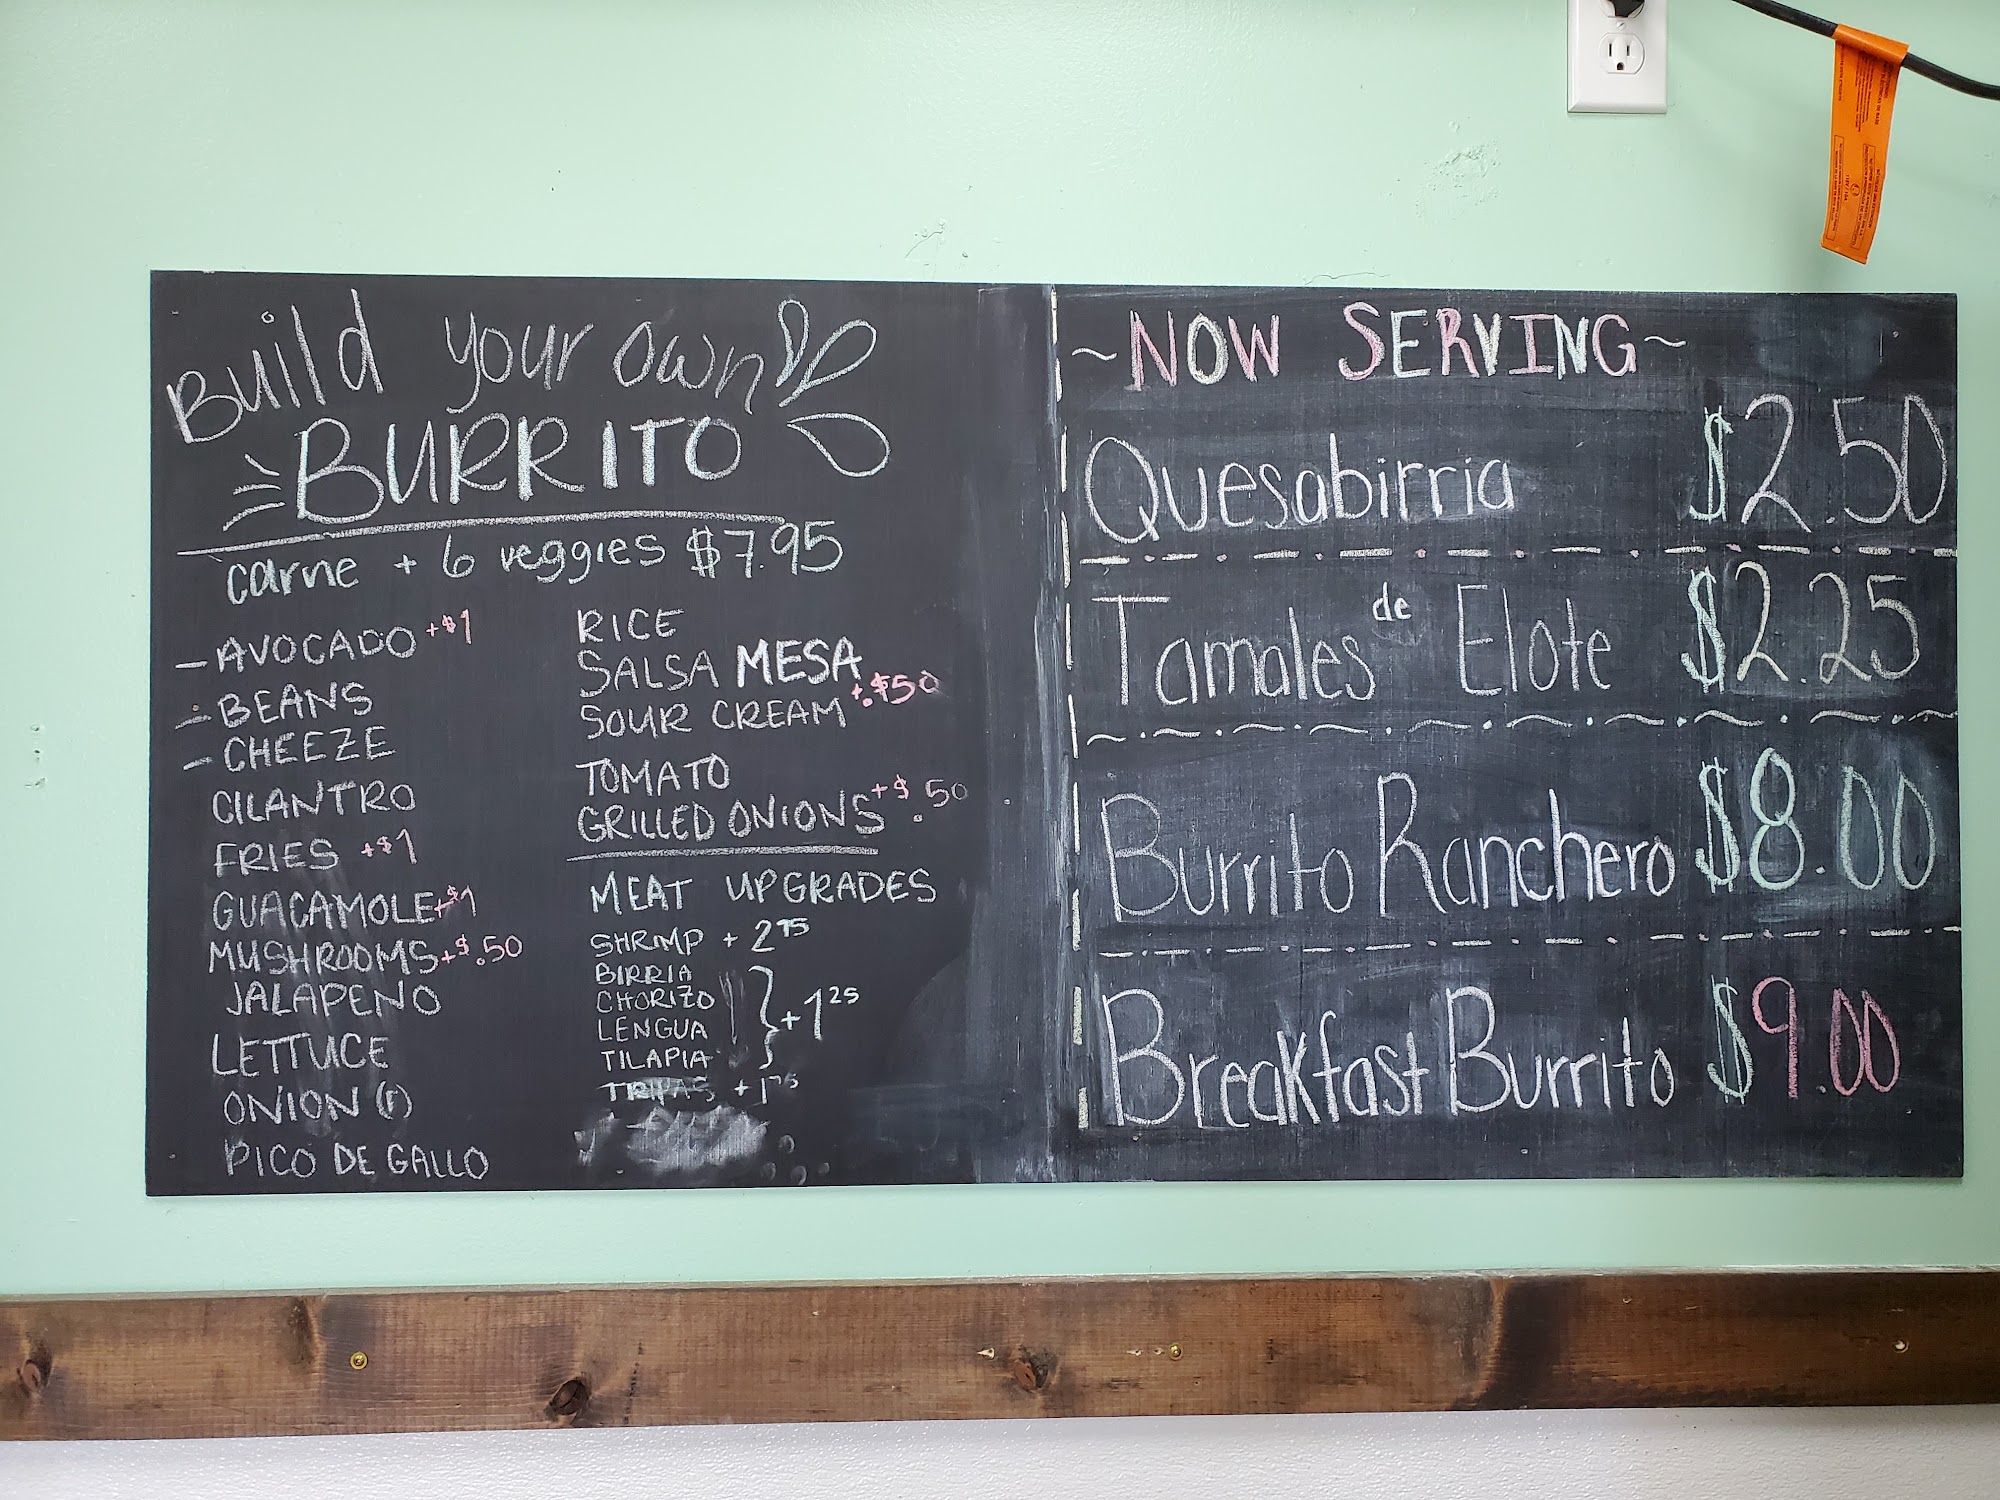 Build your own
BURRITO
carne + 6 veggies $7.95
- AVOCADO +$1
- BEANS
- CHEEZE
CILANTRO
FRIES +$1
GUACAMOLE +$1
MUSHROOMS +$.50
JALAPENO
LETTUCE
ONION (r)
PICO DE GALLO
RICE
SALSA MESA
SOUR CREAM +$.50
TOMATO
GRILLED ONIONS +$.50
MEAT UPGRADES
SHRMP + 2.75
BIRRIA
CHORIZO
LENGUA
TILAPIA
+ 1 25
TRIPAS + 1 75
~NOW SERVING~
Quesabirria $2.50
Tamales de Elote $2.25
Burrito Ranchero $8.00
Breakfast Burrito $9.00